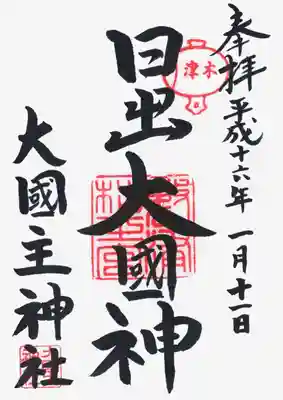 奉拝 平成十六年 一月十一日
木津
日出大國神
大國主神社